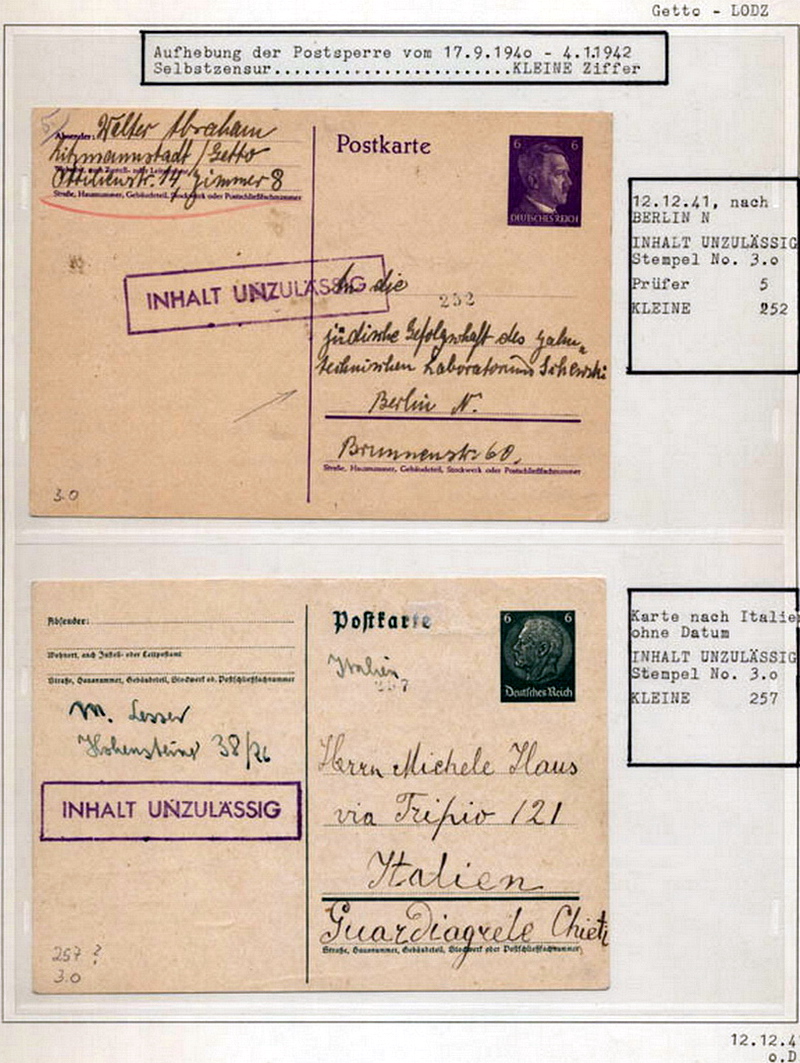 Getto - LODZ
Aufhebung der Postsperre vom 17.9.194o - 4.1.1942
Selbstzensur........................KLEINE Ziffer
Absender: Walter Abraham
Litzmannstadt / Getto
Ottilienstr. 14, Zimmer 8
Straße, Hausnummer, Gebäudeteil, Stockwerk oder Postschließfachnummer
Postkarte
6 6
DEUTSCHES REICH
INHALT UNZULÄSSIG
An die
252
jüdische Gefolgschaft des zahn-
technischen Laboratoriums
Berlin N.
Brunnenstr. 60.
Straße, Hausnummer, Gebäudeteil, Stockwerk oder Postschließfachnummer
3.0
12.12.41, nach
BERLIN N
INHALT UNZULÄSSIG
Stempel No. 3.o
Prüfer 5
KLEINE 252
Absender:
Wohnort, auch Zustell- oder Leitpostamt
Straße, Hausnummer, Gebäudeteil, Stockwerk od. Postschließfachnummer
M. Lesser
Hohensteiner 38/26
INHALT UNZULÄSSIG
257 ?
3.0
Postkarte
6 6
Deutsches Reich
Italien
257
Herrn Michele Haus
via Tripio 121
Italien
Guardiagrele Chieti
Straße, Hausnummer, Gebäudeteil, Stockwerk oder Postschließfachnummer
Karte nach Italie
ohne Datum
INHALT UNZULÄSSIG
Stempel No. 3.o
KLEINE 257
12.12.4
o.D